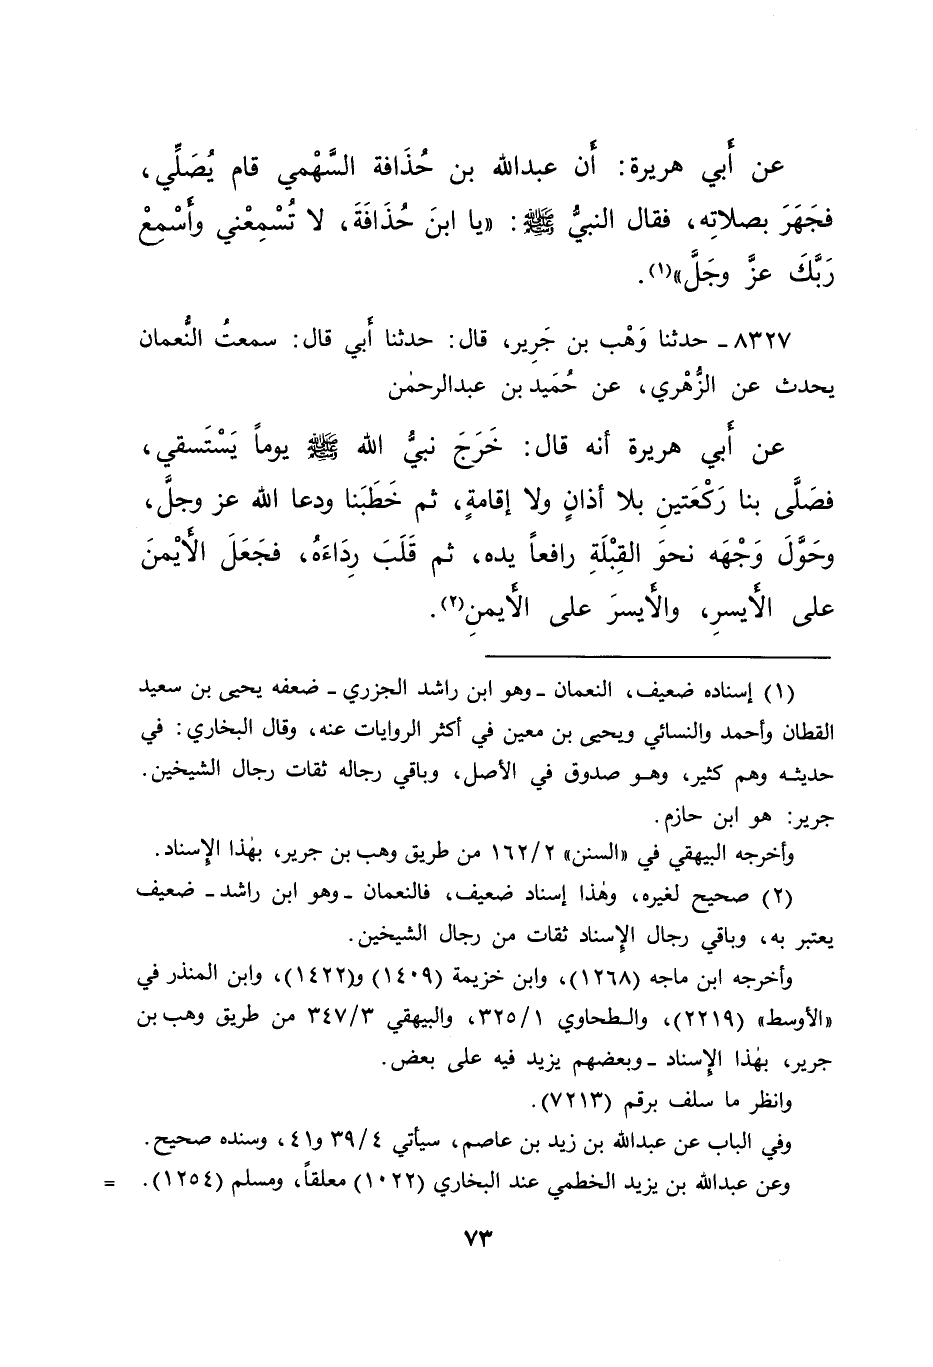 عن أَبي هريرة: أَن عبدالله بن حُذَافة السَّهْمي قام يُصَلِّي،
فجَهَرَ بصلاتِه، فقال النبيُّ ﷺ: «يا ابنَ حُذَافَةَ، لا تُسْمِعْني وأَسْمِعْ
رَبَّكَ عزَّ وجَلَّ»(١).
٨٣٢٧ ـ حدثنا وَهْب بن جَرِير، قال: حدثنا أَبي قال: سمعتُ النُّعمان
يحدث عن الزُّهْري، عن حُمَيد بن عبدالرحمٰن
عن أَبي هريرة أنه قال: خَرَجَ نبيُّ الله ﷺ يوماً يَسْتَسقي،
فصَلَّى بنا رَكْعَتينِ بلا أذانٍ ولا إقامةٍ، ثم خَطَبَنا ودعا الله عز وجلَّ،
وحَوَّلَ وَجْهَه نحوَ القِبْلَةِ رافعاً يده، ثم قَلَبَ رِدَاءَهُ، فجَعَلَ الأَيْمنَ
على الأَيسرِ، والأَيسرَ على الأَيمنِ(٢).
(١) إسناده ضعيف، النعمان ـ وهو ابن راشد الجزري ـ ضعفه يحيى بن سعيد
القطان وأحمد والنسائي ويحيى بن معين في أكثر الروايات عنه، وقال البخاري: في
حديثه وهم كثير، وهو صدوق في الأصل، وباقي رجاله ثقات رجال الشيخين.
جرير: هو ابن حازم.
وأخرجه البيهقي في «السنن» ١٦٢/٢ من طريق وهب بن جرير، بهٰذا الإِسناد.
(٢) صحيح لغيره، وهٰذا إسناد ضعيف، فالنعمان ـ وهو ابن راشد ـ ضعيف
يعتبر به، وباقي رجال الإِسناد ثقات من رجال الشيخين.
وأخرجه ابن ماجه (١٢٦٨)، وابن خزيمة (١٤٠٩) و(١٤٢٢)، وابن المنذر في
«الأوسط» (٢٢١٩)، والطحاوي ٣٢٥/١، والبيهقي ٣٤٧/٣ من طريق وهب بن
جرير، بهٰذا الإِسناد ـ وبعضهم يزيد فيه على بعض.
وانظر ما سلف برقم (٧٢١٣).
وفي الباب عن عبدالله بن زيد بن عاصم، سيأتي ٣٩/٤ و٤١، وسنده صحيح.
وعن عبدالله بن يزيد الخطمي عند البخاري (١٠٢٢) معلقاً، ومسلم (١٢٥٤). =
٧٣